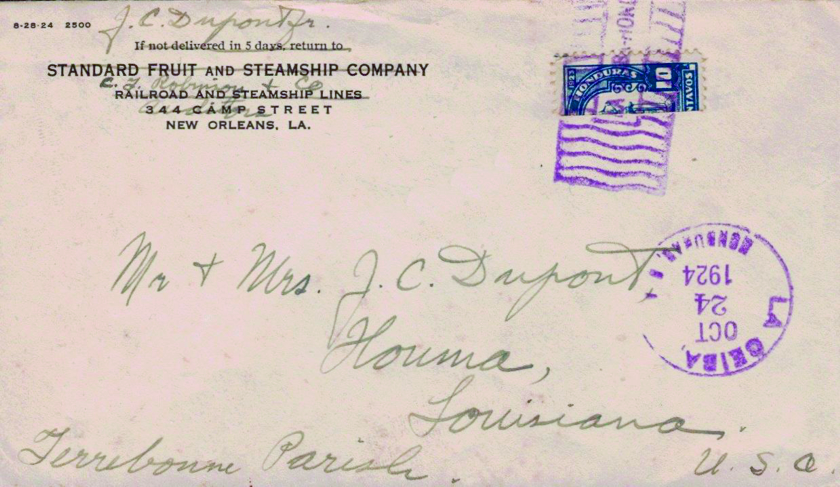 8-28-24 2500
J. C. Dupont Jr.
If not delivered in 5 days, return to
STANDARD FRUIT AND STEAMSHIP COMPANY
C. T. Robinson & Co
RAILROAD AND STEAMSHIP LINES
344 CAMP STREET
NEW ORLEANS, LA.
HONDURAS
10
CENTAVOS
Mr & Mrs. J. C. Dupont,
Houma,
Louisiana.
Terrebonne Parish.
U. S. A.
LA CEIBA,
OCT
24
1924
HONDURAS,